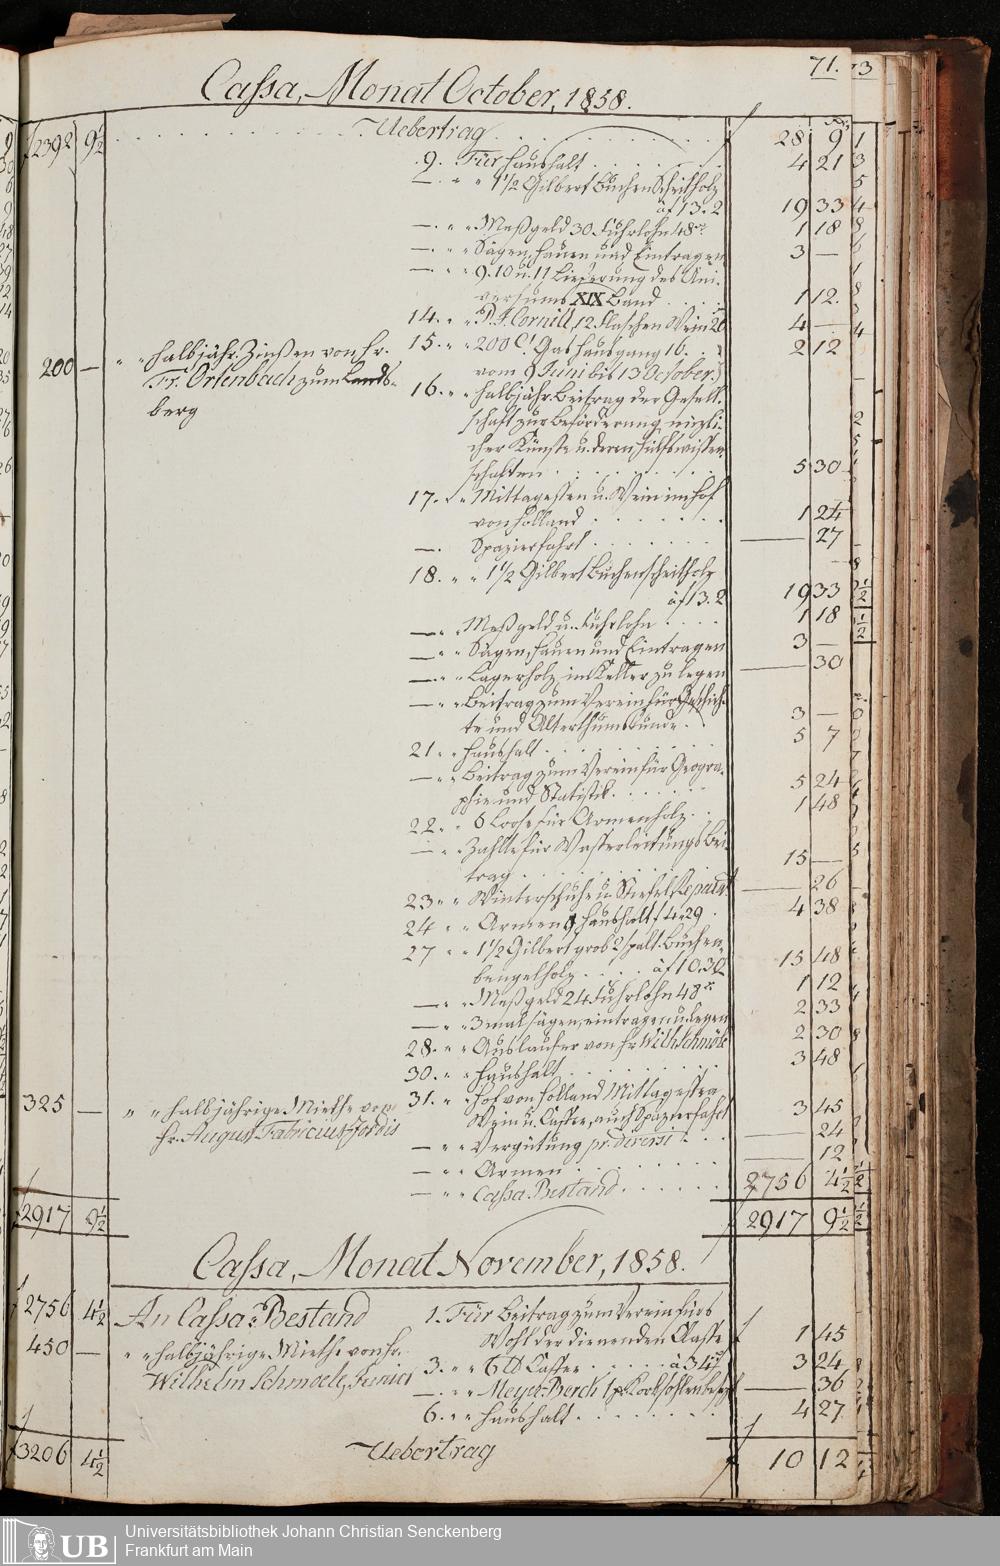 71.
Cassa, Monat October, 1858.
f 2392 9½ Uebertrag f 28 9
9. Für Haushalt 4 21
— „ „ 1½ Gilbert Buchen Scheitholz
à f 13. 2 19 33
— „ „ Meßgeld 30. Fuhrlohn 48 x 1 18
— „ „ Sägen, Hauen und Eintragen 3 —
— „ „ 9. 10 u. 11 Lieferung des Uni-
versums XIX Band 1 12.
14. „ „ P. J. Cornill, 12 Flaschen Wein 20 4 —
15. „ „ 200 C' Gas Hausgang 16. 2 12
vom 9 Juni bis 13 October.
200 — „ „ halbjähr. Zinßen von Hr.
Fr. Ortenbach zum Lands-
berg
16. „ „ halbjähr. Beitrag der Gesell-
schaft zur Beförderung nüzli-
cher Künste u. deren Hülfswissen
schaften 5 30
17. „ „ Mittagessen u. Wein im Hof
von Holland 1 24
— Spazierfahrt — 27
18. „ „ 1½ Gilbert Buchenscheitholz
à f 13. 2 19 33
— „ „ Meßgeld u. Fuhrlohn 1 18
— „ „ Sägen, Hauen und Eintragen 3 —
— „ „ Lagerholz im Keller zu legen — 30
— „ „ Beitrag zum Verein für Geschich-
te und Alterthumskunde 3 —
21. „ „ Haushalt 5 7
— „ „ Beitrag zum Verein für Geogra-
phie und Statistik 5 24
22. „ „ 6 Loose für Armenholz 1 48
— „ „ Zahlte für Wasserleitungs Bei-
trag 15 —
23. „ „ Winterschuhe u. Stiefel Reparat — 26
24 „ „ Armen 9, Haushalt f 4. 29 4 38
27 „ „ 1½ Gilbert grob gespalt. Buchen-
bengelholz à f 10. 32 15 48
— „ „ Meßgeld 24 Fuhrlohn 48 x 1 12
— „ „ 3 mal sägen, eintragen u. legen 2 33
28. „ „ Auslaufer von Hr. Wilh. Schmöle 2 30
30. „ „ Haushalt 3 48
325 — „ „ halbjährige Miethe von
Hr. August Fabricius-Jordis
31. „ „ Hof von Holland Mittagessen
Wein u. Caffee, auch Spazierfahrt 3 45
— „ „ Vergütung pr. diversi — 24
— „ „ Armen — 12
— „ „ Cassa Bestand 2756 4½
f 2917 9½ f 2917 9½
Cassa, Monat November, 1858.
f 2756 4½ An Cassa Bestand
1. Für Beitrag zum Verein fürs
Wohl der dienenden Classe f 1 45
450 — „ „ halbjährige Miethe von Hr.
Wilhelm Schmoele, Junior
3. „ „ 6 ℔ Caffee à 34 x 3 24
— „ „ Meyer-Berck 1 p. Korksohlen — 36
6. „ „ Haushalt 4 27
f 3206 4½ Uebertrag f 10 12
UB
Universitätsbibliothek Johann Christian Senckenberg
Frankfurt am Main